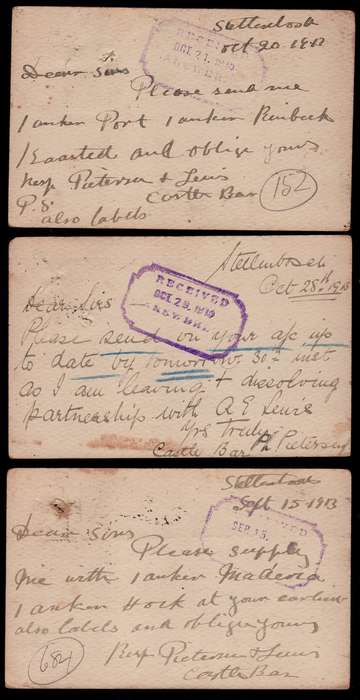 Stellenbosch
Oct 20 1913
Dear Sirs
Please send me
1 anker Port 1 anker
1 and oblige yours
Resp Pieterse & Lewis
Castle Bar
P.S.
also labels
152
RECEIVED
OCT 21 1913
Stellenbosch
Oct 28th 1913
Dear Sirs
Please send on your a/c up
to date by tomorrow 30th inst
as I am leaving & dissolving
partnership with A E Lewis
Yrs Truly
Castle Bar Pieterse
RECEIVED
OCT 29 1913
Stellenbosch
Sept 15 1913
Dear Sirs
Please supply
me with 1 anker Madeira
1 anker Hock at your earliest
also labels and oblige yours
Resp Pieterse & Lewis
Castle Bar
684
SEP 16